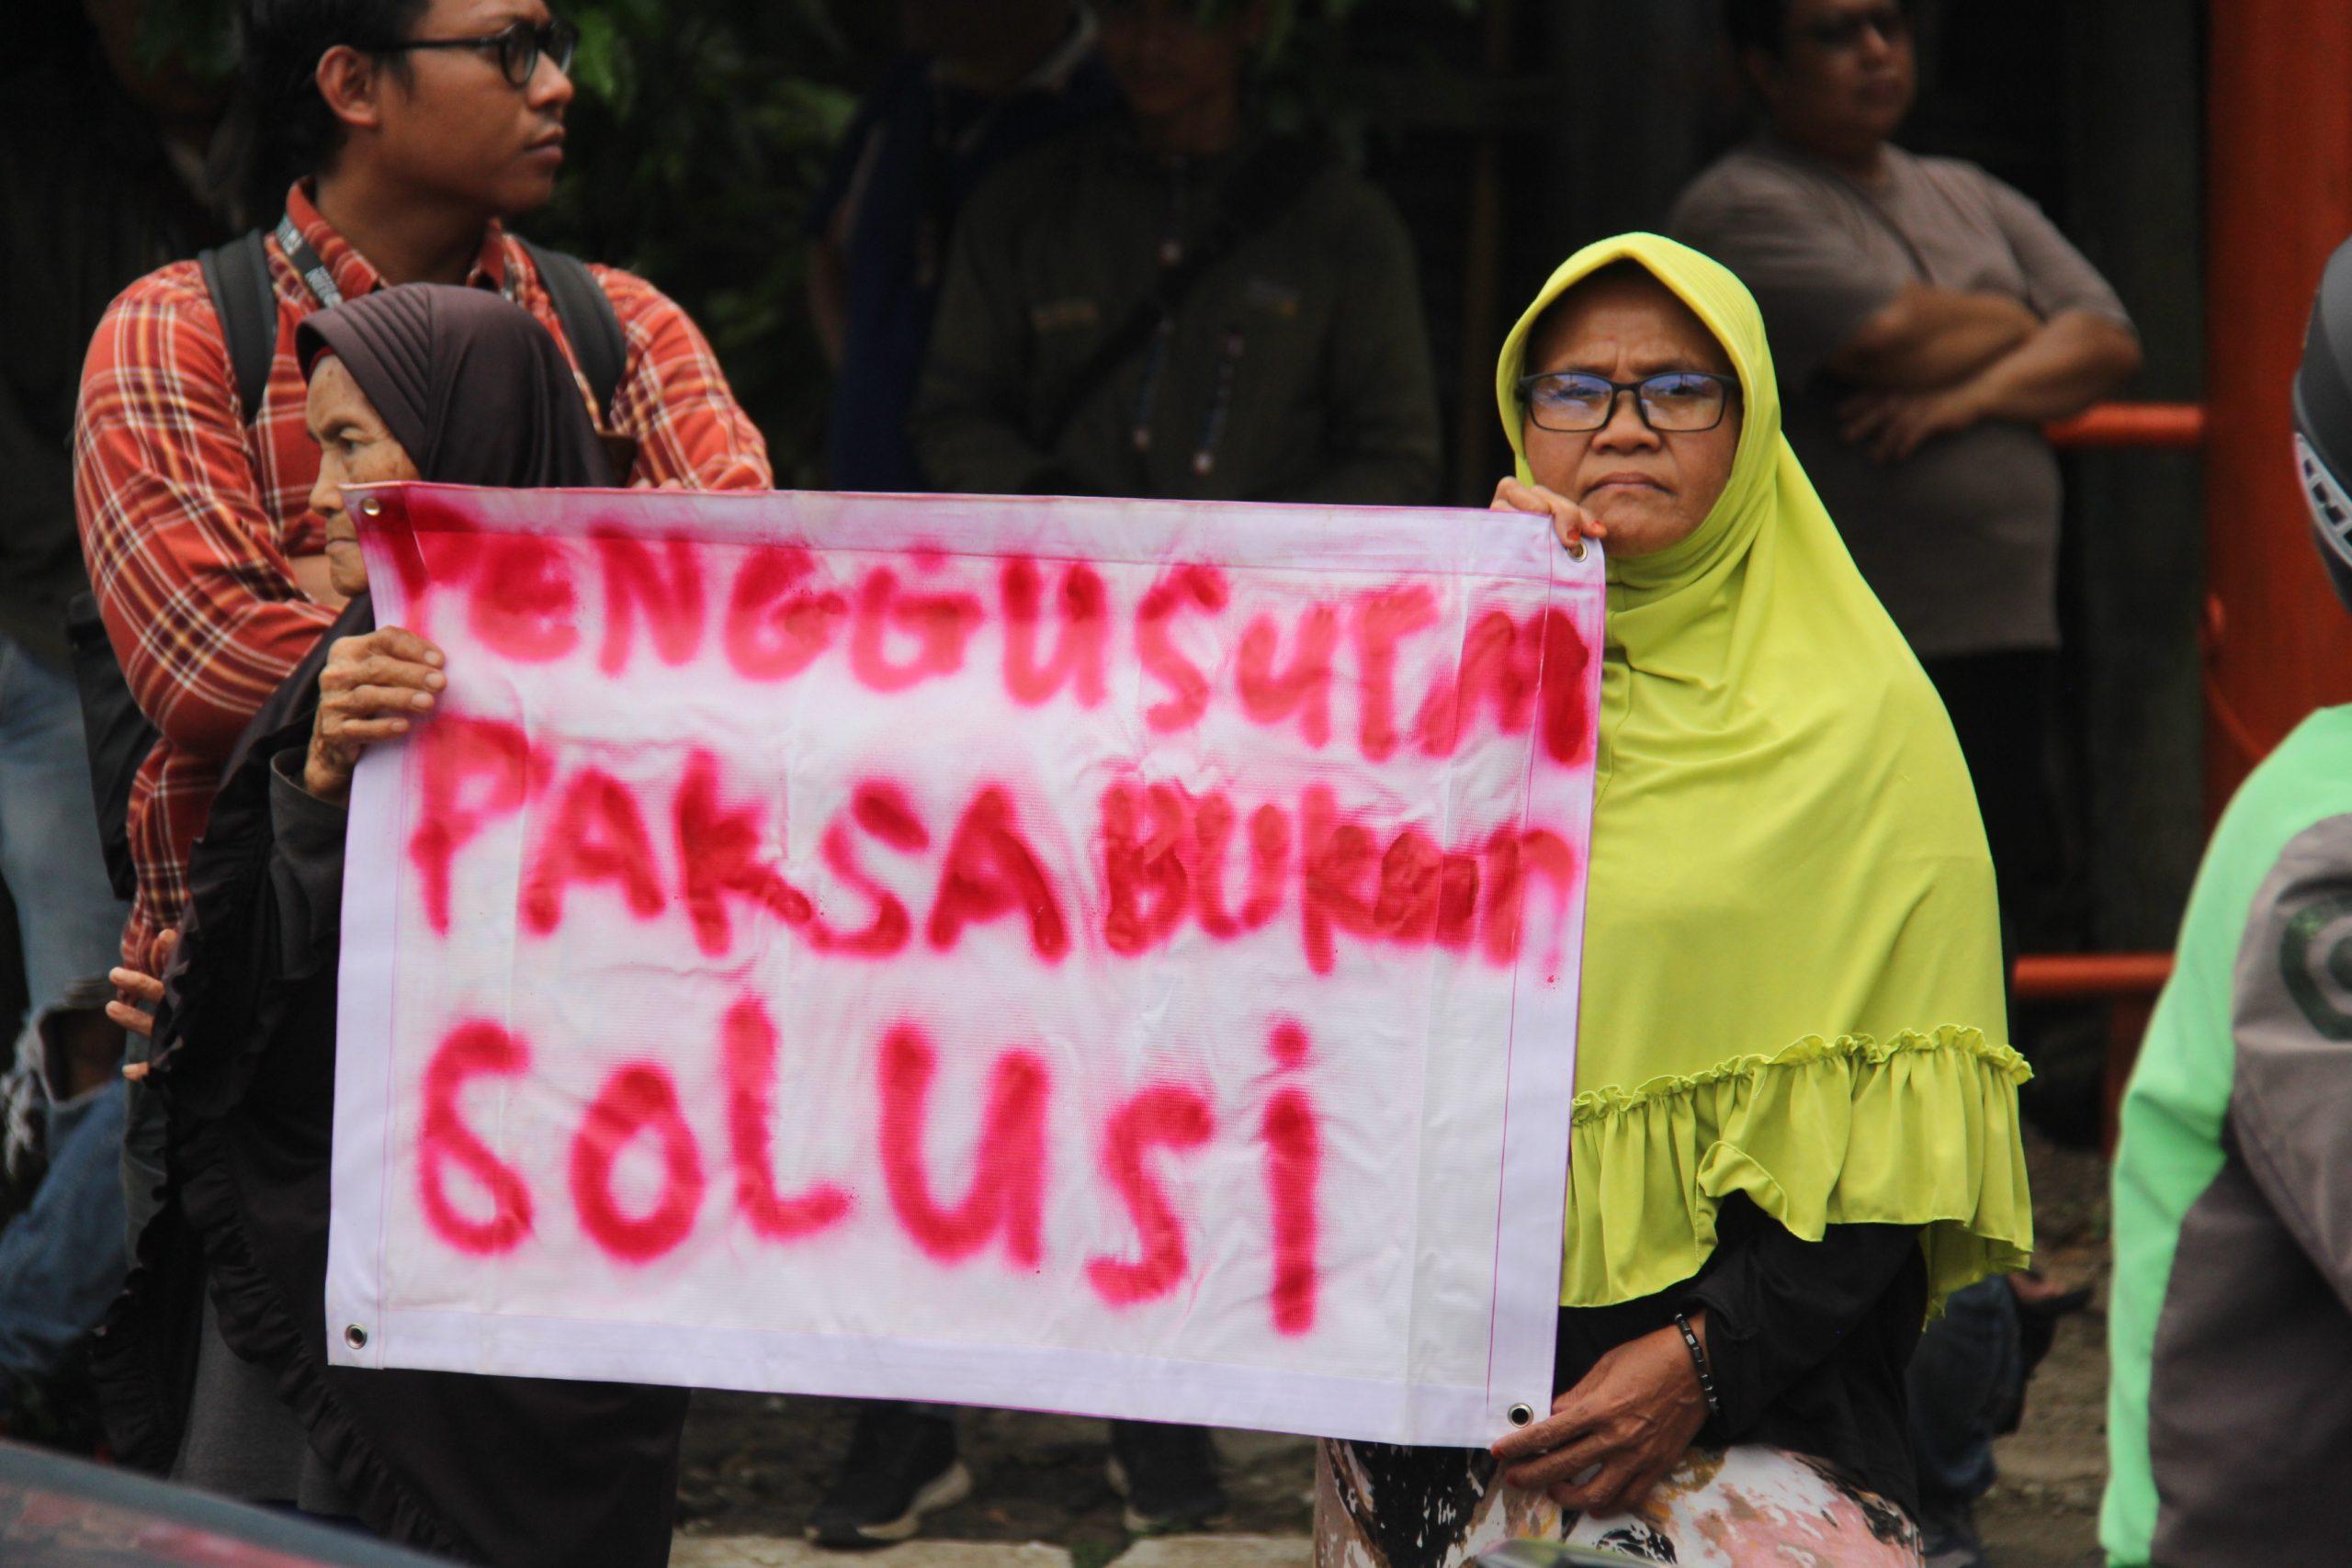 PeNGGUSuTAN
PAKSA BUKAn
SOLUSi